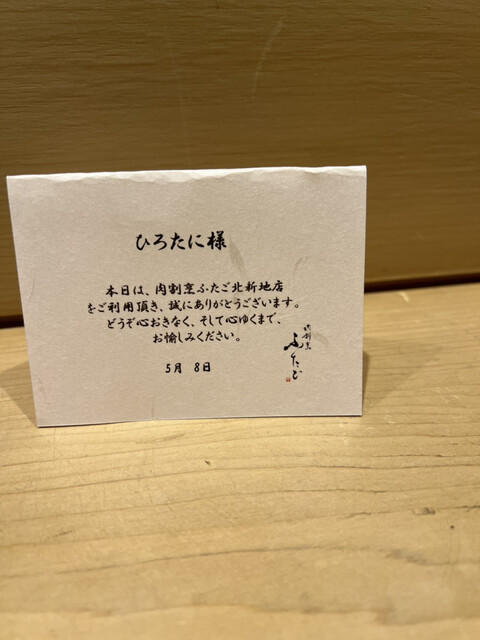 ひろたに様
本日は、肉割烹ふたご北新地店
をご利用頂き、誠にありがとうございます。
どうぞ心おきなく、そして心ゆくまで、
お愉しみください。
5月 8日
肉割烹
ふたご